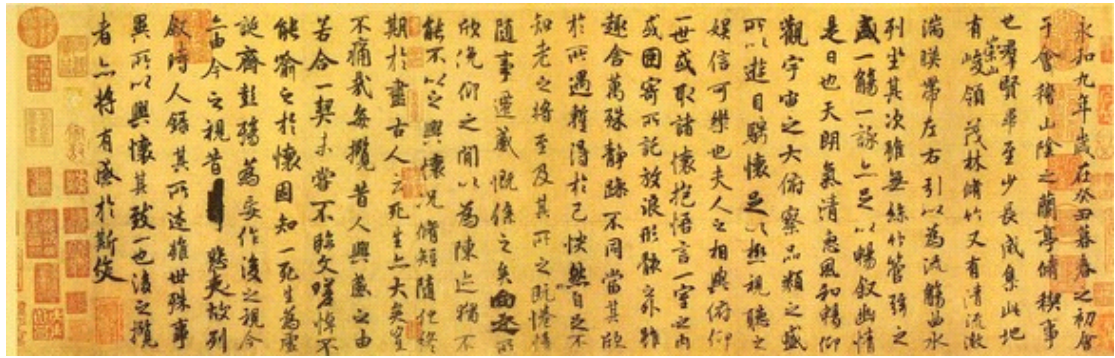 永和九年歲在癸丑暮春之初會
于會稽山陰之蘭亭脩稧事
也羣賢畢至少長咸集此地
有崇山峻領茂林脩竹又有清流激
湍暎帶左右引以為流觴曲水
列坐其次雖無絲竹管弦之
盛一觴一詠亦足以暢叙幽情
是日也天朗氣清惠風和暢仰
觀宇宙之大俯察品類之盛
所以遊目騁懷足以極視聽之
娛信可樂也夫人之相與俯仰
一世或取諸懷抱悟言一室之內
或因寄所託放浪形骸之外雖
趣舍萬殊靜躁不同當其欣
於所遇蹔得於己怏然自足不
知老之將至及其所之既惓情
隨事遷感慨係之矣向之所
欣俛仰之閒以為陳迹猶不
能不以之興懷况脩短隨化終
期於盡古人云死生亦大矣豈
不痛哉每攬昔人興感之由
若合一契未嘗不臨文嗟悼不
能喻之於懷固知一死生為虛
誕齊彭殤為妄作後之視今
亦由今之視昔悲夫故列
叙時人錄其所述雖世殊事
異所以興懷其致一也後之攬
者亦將有感於斯文